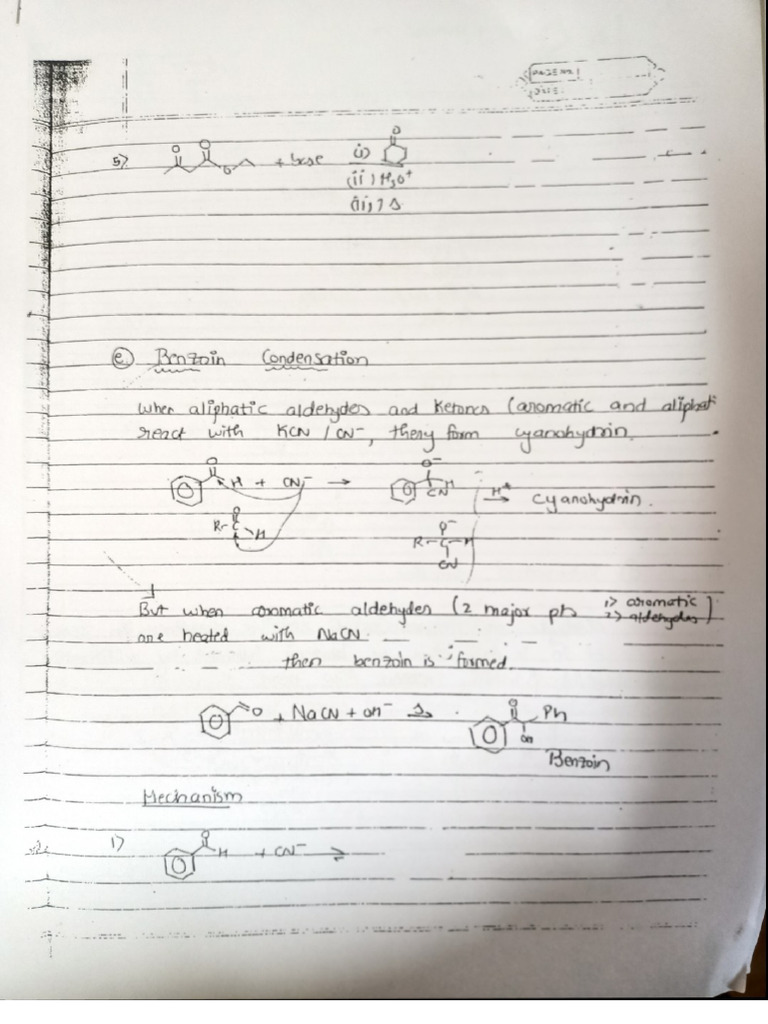 PAGE NO.
DATE:
5) O O O + base (i) O
(ii) H3O+
(iii) Δ
(e) Benzoin Condensation
When aliphatic aldehydes and Ketones (aromatic and aliphat
react with KCN / CN-, they form cyanohydrin.
O H + CN- → O- H CN H+ → cyanohydrin.
R-C O H R-C-H O- CN
But when aromatic aldehydes (2 major pts 1) aromatic 2) aldehydes)
are heated with NaCN
then benzoin is formed.
O + NaCN + OH- Δ→ O Ph OH
Benzoin
Mechanism
1) O H + CN- ⇌